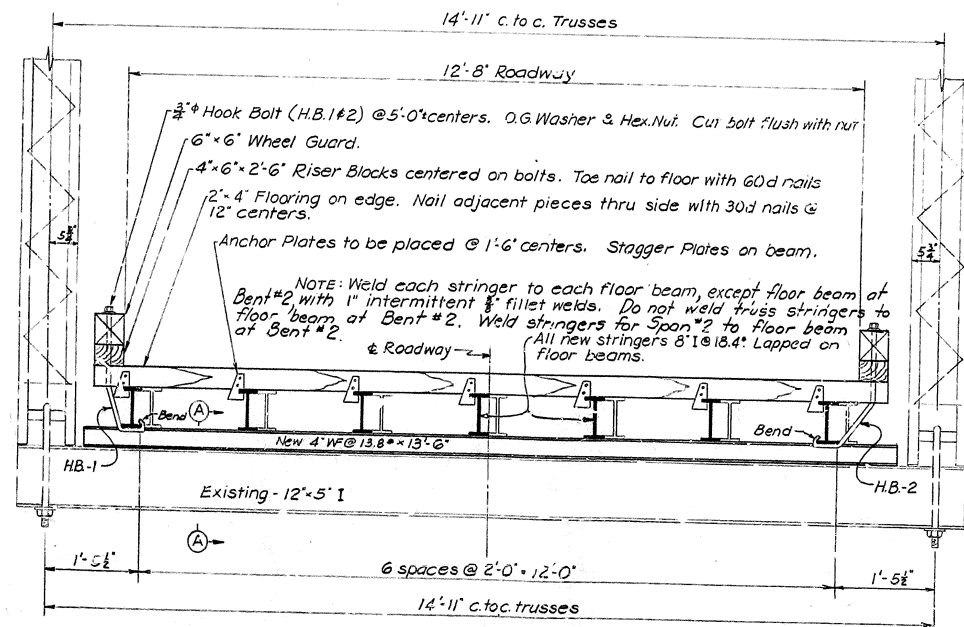 14'-11" c. to c. Trusses
12'-8" Roadway
3/4" φ Hook Bolt (H.B. 1 & 2) @ 5'-0"± centers. O.G. Washer & Hex. Nut. Cut bolt flush with nut
6"×6" Wheel Guard.
4"×6"×2'-6" Riser Blocks centered on bolts. Toe nail to floor with 60d nails
2"×4" Flooring on edge. Nail adjacent pieces thru side with 30d nails @
12" centers.
5 3/4"
5 3/4"
Anchor Plates to be placed @ 1'-6" centers. Stagger Plates on beam.
NOTE: Weld each stringer to each floor beam, except floor beam at
Bent #2, with 1" intermittent fillet welds. Do not weld truss stringers to
floor beam at Bent #2. Weld stringers for Span #2 to floor beam
at Bent #2.
℄ Roadway
All new stringers 8" I @ 18.4# Lapped on
floor beams.
Bend
A
Bend
New 4" WF @ 13.8# × 13'-6"
H.B.-1
H.B.-2
Existing - 12"×5" I
A
1'-5 1/2"
6 spaces @ 2'-0" = 12'-0"
1'-5 1/2"
14'-11" c. to c. trusses